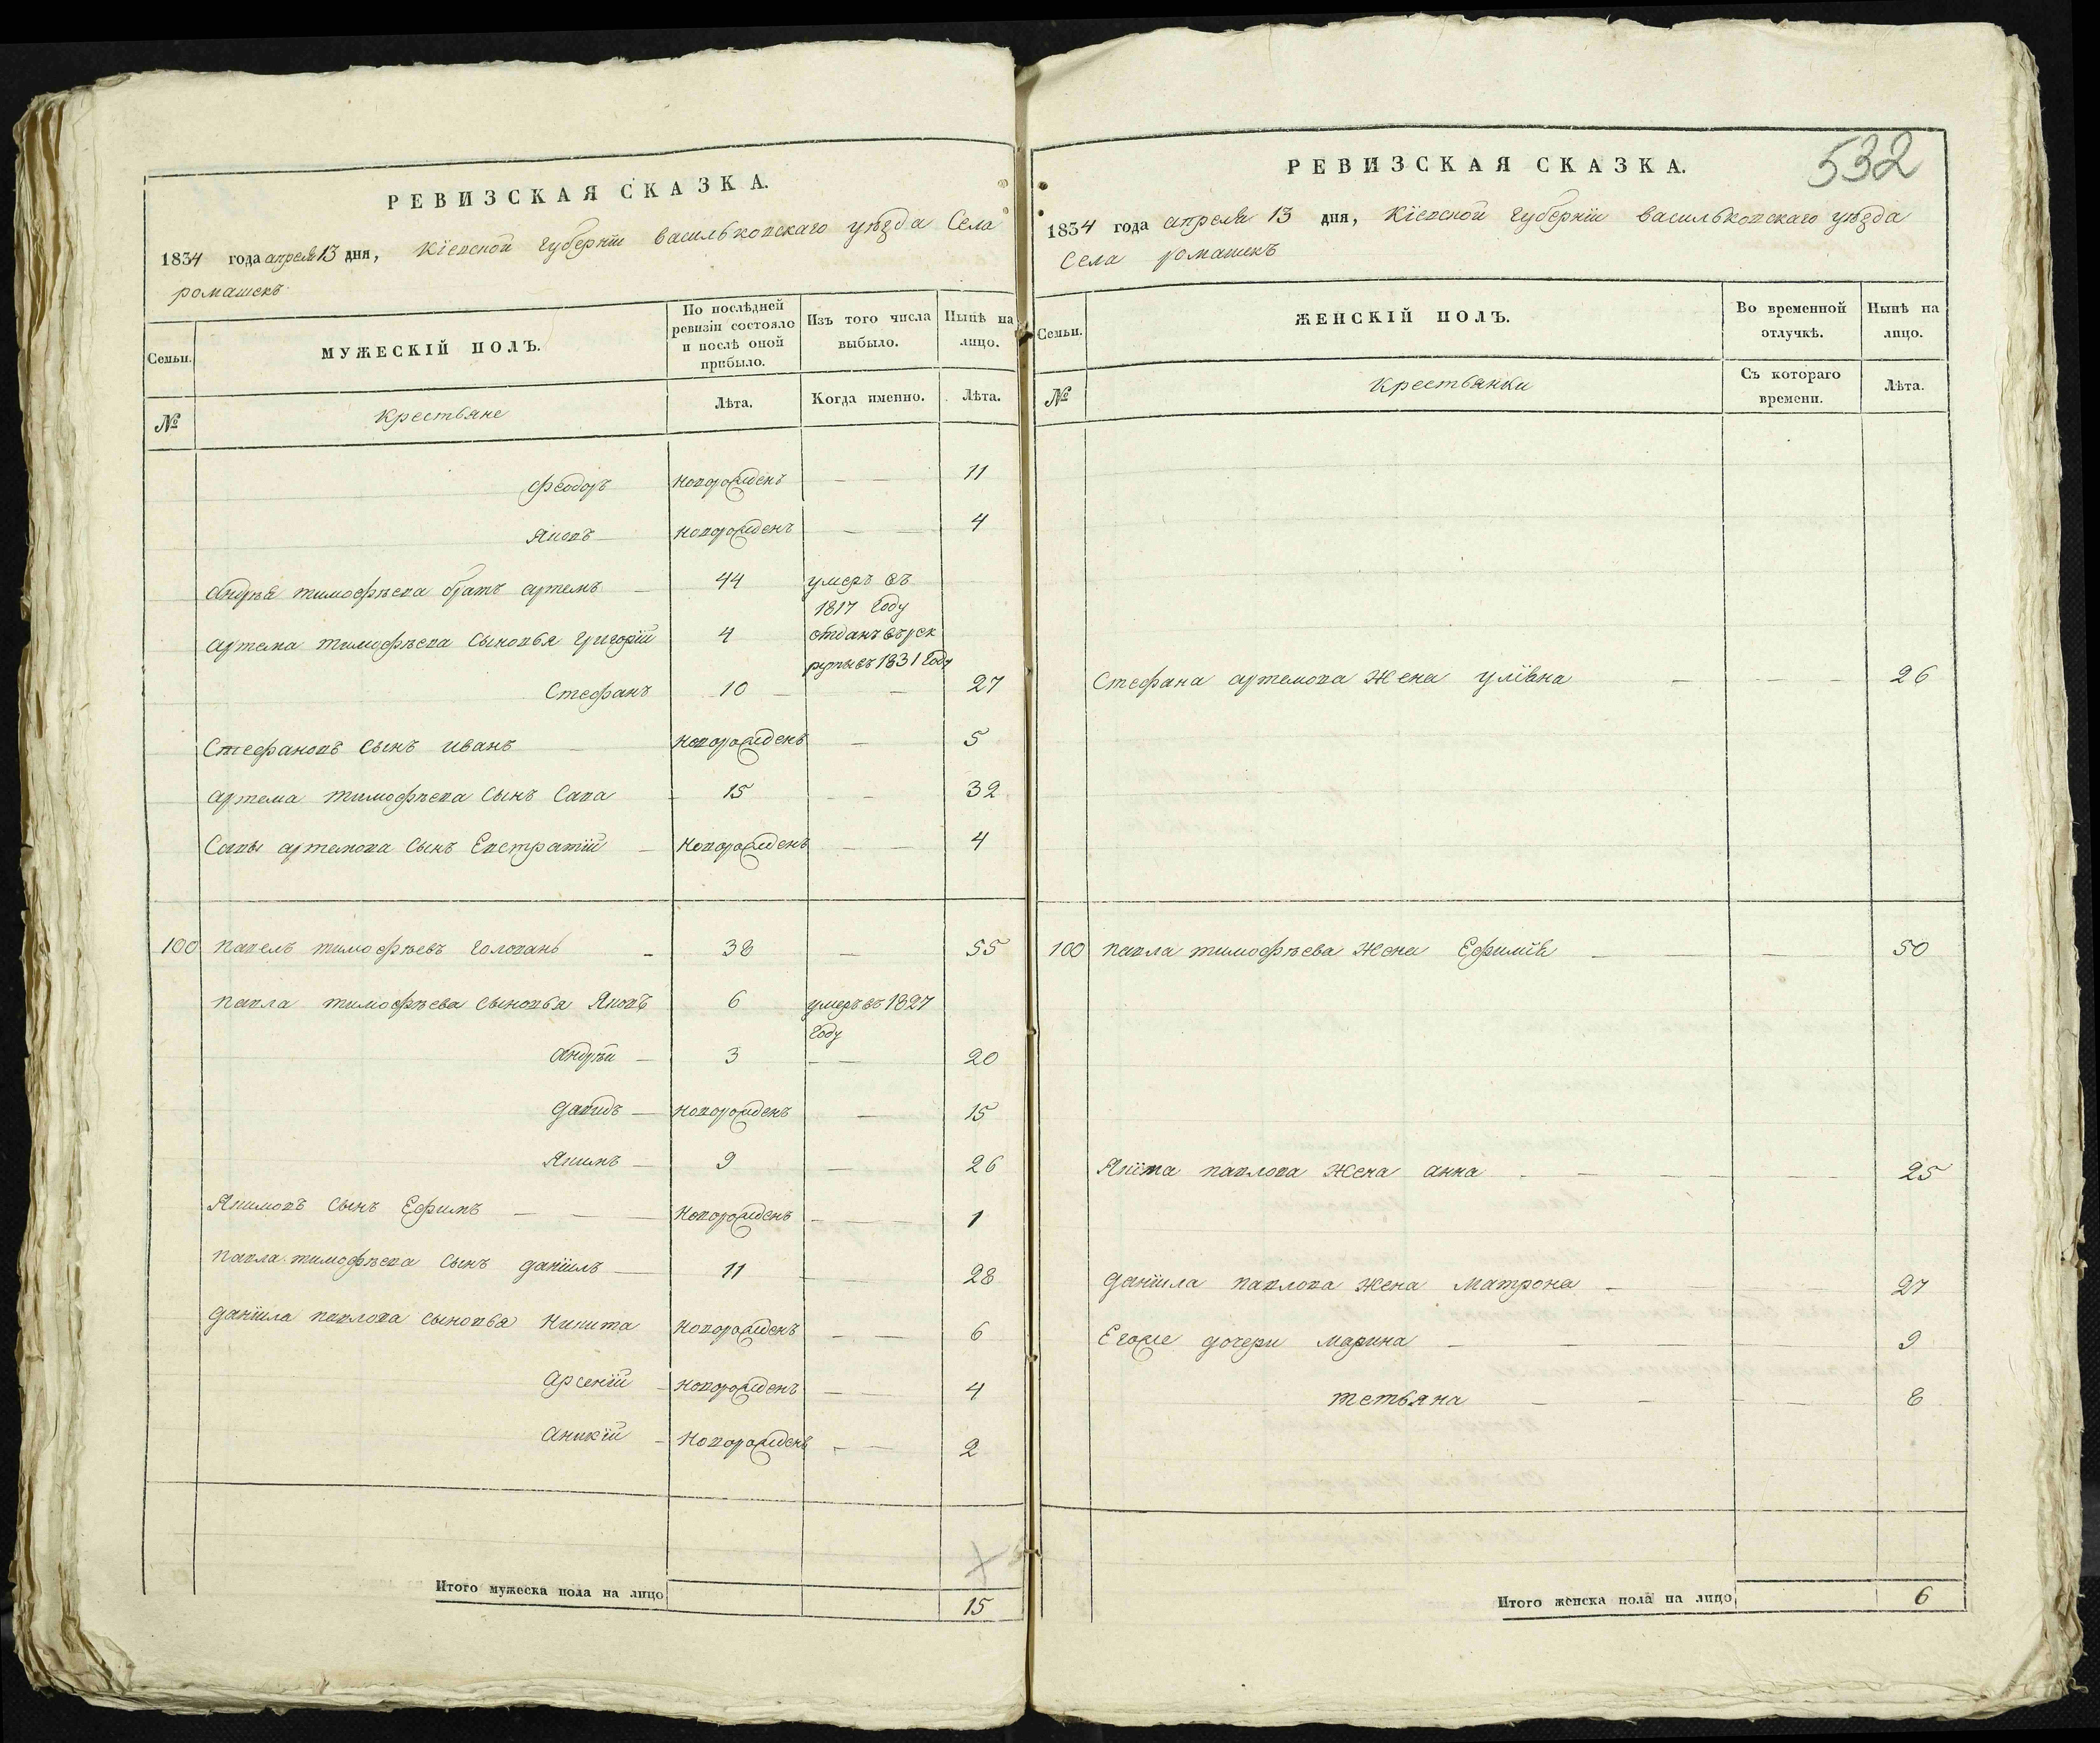 РЕВИЗСКАЯ СКАЗКА.
1834 года апреля 13 дня, Кіевской губерніи васильковскаго уѣзда Села
ромашекъ
Семьи.
МУЖЕСКІЙ ПОЛЪ.
По послѣдней ревизіи состояло и послѣ оной прибыло.
Изъ того числа выбыло.
Нынѣ на лицо.
№
крестьяне
Лѣта.
Когда именно.
Лѣта.
Феодоръ новорожденъ — — 11
Яковъ — новорожденъ — — 4
андрея тимофѣева братъ артемъ — 44 умеръ въ
1817 году
артема тимофѣева сыновья григорій 4 отданъ въ рек
руты въ 1831 году
Стефанъ 10 — — 27
Стефановъ сынъ иванъ — новорожденъ — 5
артема тимофѣева сынъ Сава — 15 — — 32
Савы артемова сынъ Евстратій — новорожденъ — — 4
100 павелъ тимофѣевъ головань — 38 — 55
павла тимофѣева сыновья Яковъ 6 умеръ въ 1827
году
андрѣй — 3 — — 20
давидъ — новорожденъ — 15
Якимъ — 9 — 26
Якимовъ сынъ Ефимъ — — — новорожденъ — — — 1
павла тимофѣева сынъ даніилъ — 11 — — 28
даніила павлова сыновья никита новорожденъ — — 6
арсеній — новорожденъ — — 4
аникій — новорожденъ — — 2
Итого мужеска пола на лицо 15
532
РЕВИЗСКАЯ СКАЗКА.
1834 года апреля 13 дня, Кіевской губерніи васильковскаго уѣзда
Села ромашекъ
Семьи.
ЖЕНСКІЙ ПОЛЪ.
Во временной отлучкѣ.
Нынѣ на лицо.
№
крестьянки
Съ котораго времени.
Лѣта.
Стефана артемова жена уліяна — — — — 26
100 павла тимофѣева жена Ефимія — — — — 50
павлова жена анна — — — — 25
даніила павлова жена матрона — — — — 27
Егоже дочери марина — — — — 9
тетьяна — — — — 8
Итого женска пола на лицо 6